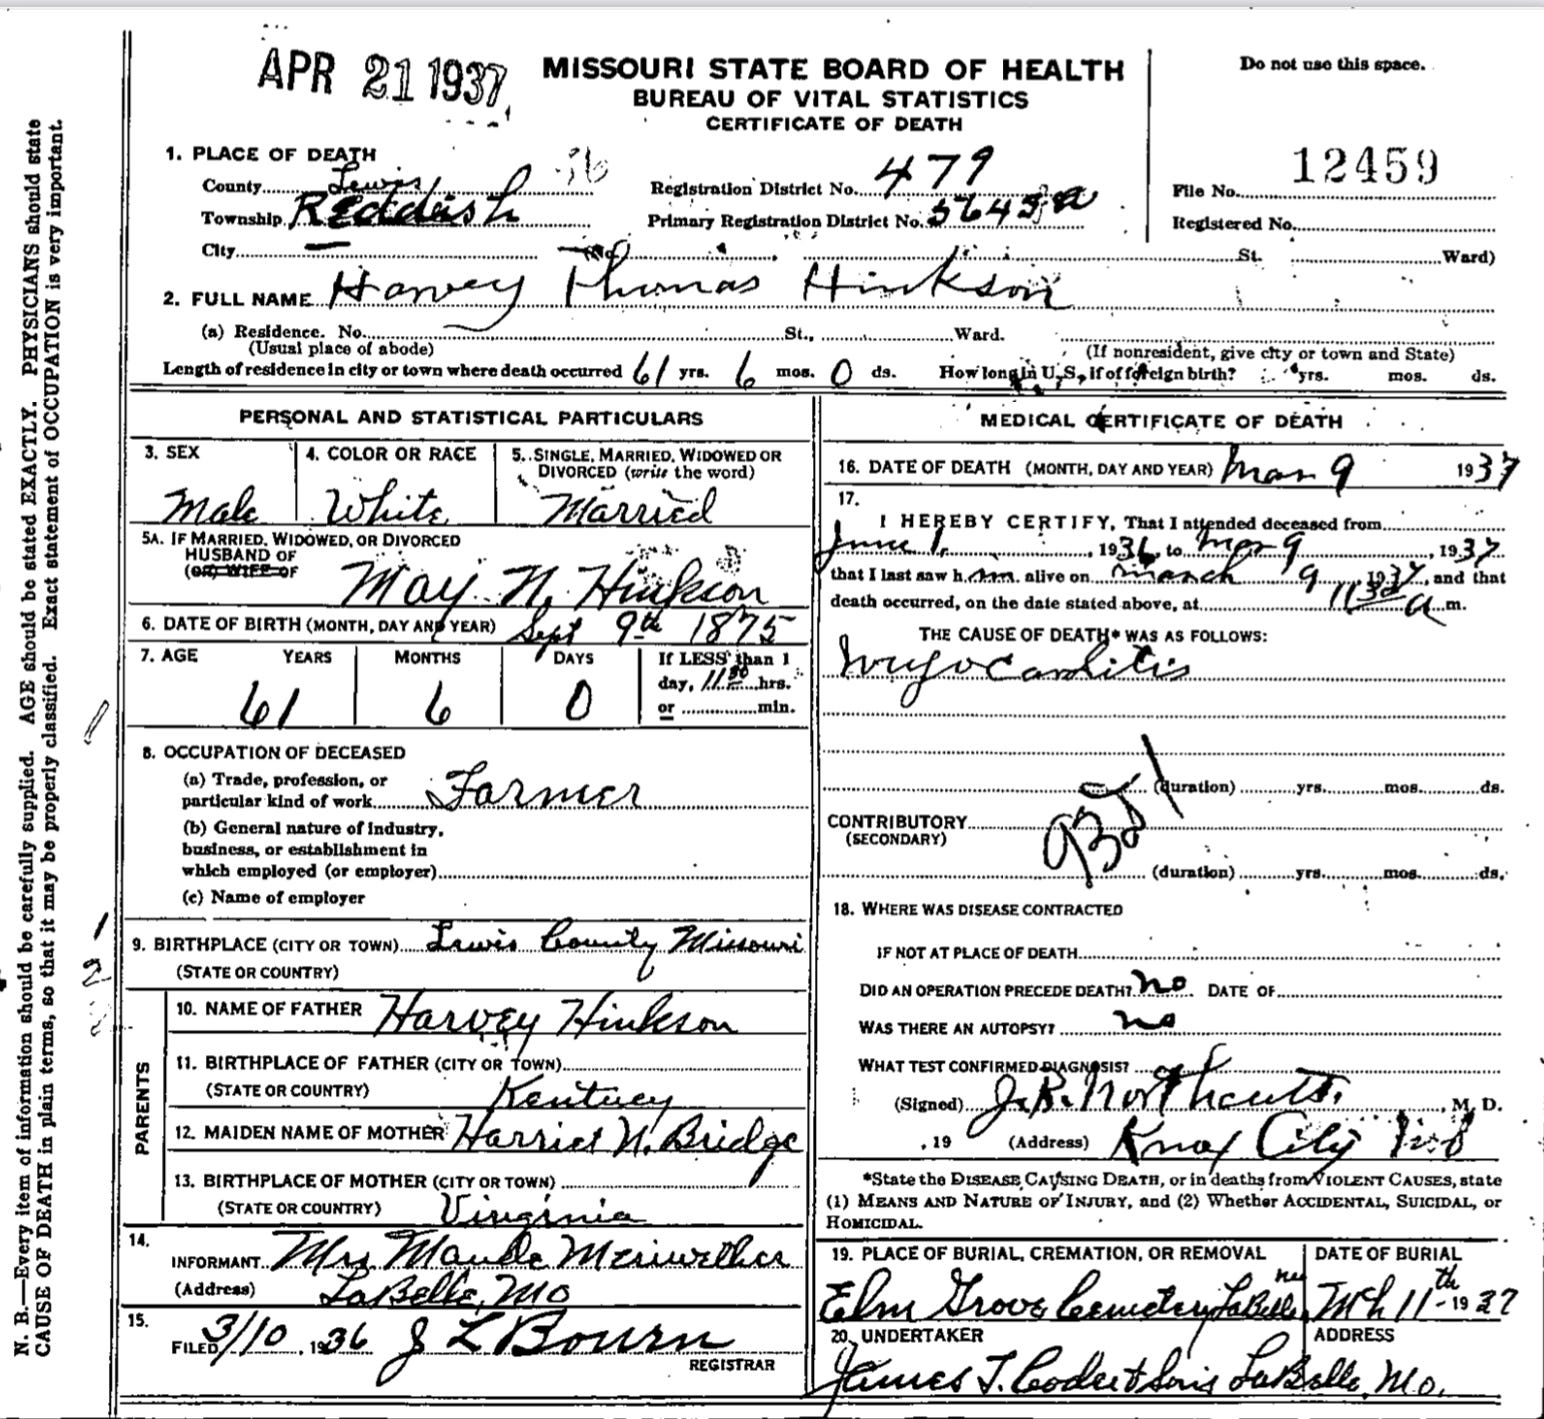 APR 21 1937
MISSOURI STATE BOARD OF HEALTH
BUREAU OF VITAL STATISTICS
CERTIFICATE OF DEATH
Do not use this space.
1. PLACE OF DEATH
County Lewis
Township Reddish
City No. St. Ward)
Registration District No. 479
Primary Registration District No. 5643a
File No. 12459
Registered No.
2. FULL NAME Harvey Thomas Hinkson
(a) Residence. No. St., Ward.
(Usual place of abode) (If nonresident, give city or town and State)
Length of residence in city or town where death occurred 61 yrs. 6 mos. 0 ds. How long in U. S., if of foreign birth? yrs. mos. ds.
PERSONAL AND STATISTICAL PARTICULARS
3. SEX
Male
4. COLOR OR RACE
White
5. SINGLE, MARRIED, WIDOWED OR
DIVORCED (write the word)
Married
5A. IF MARRIED, WIDOWED, OR DIVORCED
HUSBAND OF
(OR) WIFE OF
May N. Hinkson
6. DATE OF BIRTH (MONTH, DAY AND YEAR) Sept 9th 1875
7. AGE YEARS MONTHS DAYS If LESS than 1
61 6 0 day, 11 30 hrs.
or min.
8. OCCUPATION OF DECEASED
(a) Trade, profession, or
particular kind of work Farmer
(b) General nature of industry,
business, or establishment in
which employed (or employer)
(c) Name of employer
9. BIRTHPLACE (CITY OR TOWN) Lewis County Missouri
(STATE OR COUNTRY)
PARENTS
10. NAME OF FATHER Harvey Hinkson
11. BIRTHPLACE OF FATHER (CITY OR TOWN)
(STATE OR COUNTRY) Kentucy
12. MAIDEN NAME OF MOTHER Harriet N. Bridge
13. BIRTHPLACE OF MOTHER (CITY OR TOWN)
(STATE OR COUNTRY) Virginia
14.
INFORMANT Mrs Maude Meriwether
(Address) LaBelle, Mo
15.
FILED 3/10, 1936 J L Bourn
REGISTRAR
MEDICAL CERTIFICATE OF DEATH
16. DATE OF DEATH (MONTH, DAY AND YEAR) Mar 9 1937
17.
I HEREBY CERTIFY, That I attended deceased from
June 1, 1936, to Mar 9, 1937
that I last saw h im alive on March 9, 1937, and that
death occurred, on the date stated above, at 11 30 a m.
THE CAUSE OF DEATH* WAS AS FOLLOWS:
Myocarditis
(duration) yrs. mos. ds.
CONTRIBUTORY
(SECONDARY)
(duration) yrs. mos. ds.
18. WHERE WAS DISEASE CONTRACTED
IF NOT AT PLACE OF DEATH
DID AN OPERATION PRECEDE DEATH? no DATE OF
WAS THERE AN AUTOPSY? no
WHAT TEST CONFIRMED DIAGNOSIS?
(Signed) J. R. Northcutt, M. D.
, 19 (Address) Knox City Mo
*State the DISEASE CAUSING DEATH, or in deaths from VIOLENT CAUSES, state
(1) MEANS AND NATURE OF INJURY, and (2) Whether ACCIDENTAL, SUICIDAL, or
HOMICIDAL.
19. PLACE OF BURIAL, CREMATION, OR REMOVAL
Elm Grove Cemetery LaBelle mo
DATE OF BURIAL
Mch 11th 1937
20. UNDERTAKER ADDRESS
James T. Coder & Sons LaBelle, Mo.
N. B.—Every item of information should be carefully supplied. AGE should be stated EXACTLY. PHYSICIANS should state
CAUSE OF DEATH in plain terms, so that it may be properly classified. Exact statement of OCCUPATION is very important.